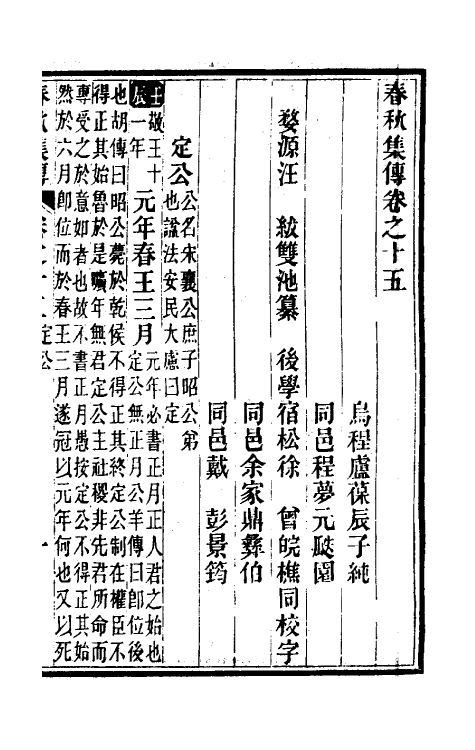 春秋集傳卷之十五
烏程盧葆辰子純
同邑程夢元颷園
婺源汪　紱雙池纂　後學宿松徐　曾皖樵同校字
同邑余家鼎彝伯
同邑戴　彭景筠
定公 公名宋襄公庶子昭公弟
也諡法安民大慮曰定
壬辰 敬王十
一年 元年春王三月 元年必書正月正人君之始也
定公無正月公羊傳曰卽位後
也胡傳曰昭公薨於乾侯不得正其終定公制在權臣不
得正其始魯於是曠年無君定公主社稷非先君所命而
專受之於意如者也故不書正月愚按定公不得正其始
然於六月卽位而於春王三月遂冠以元年何也又以死
春秋集傳 卷之十五 定公 一